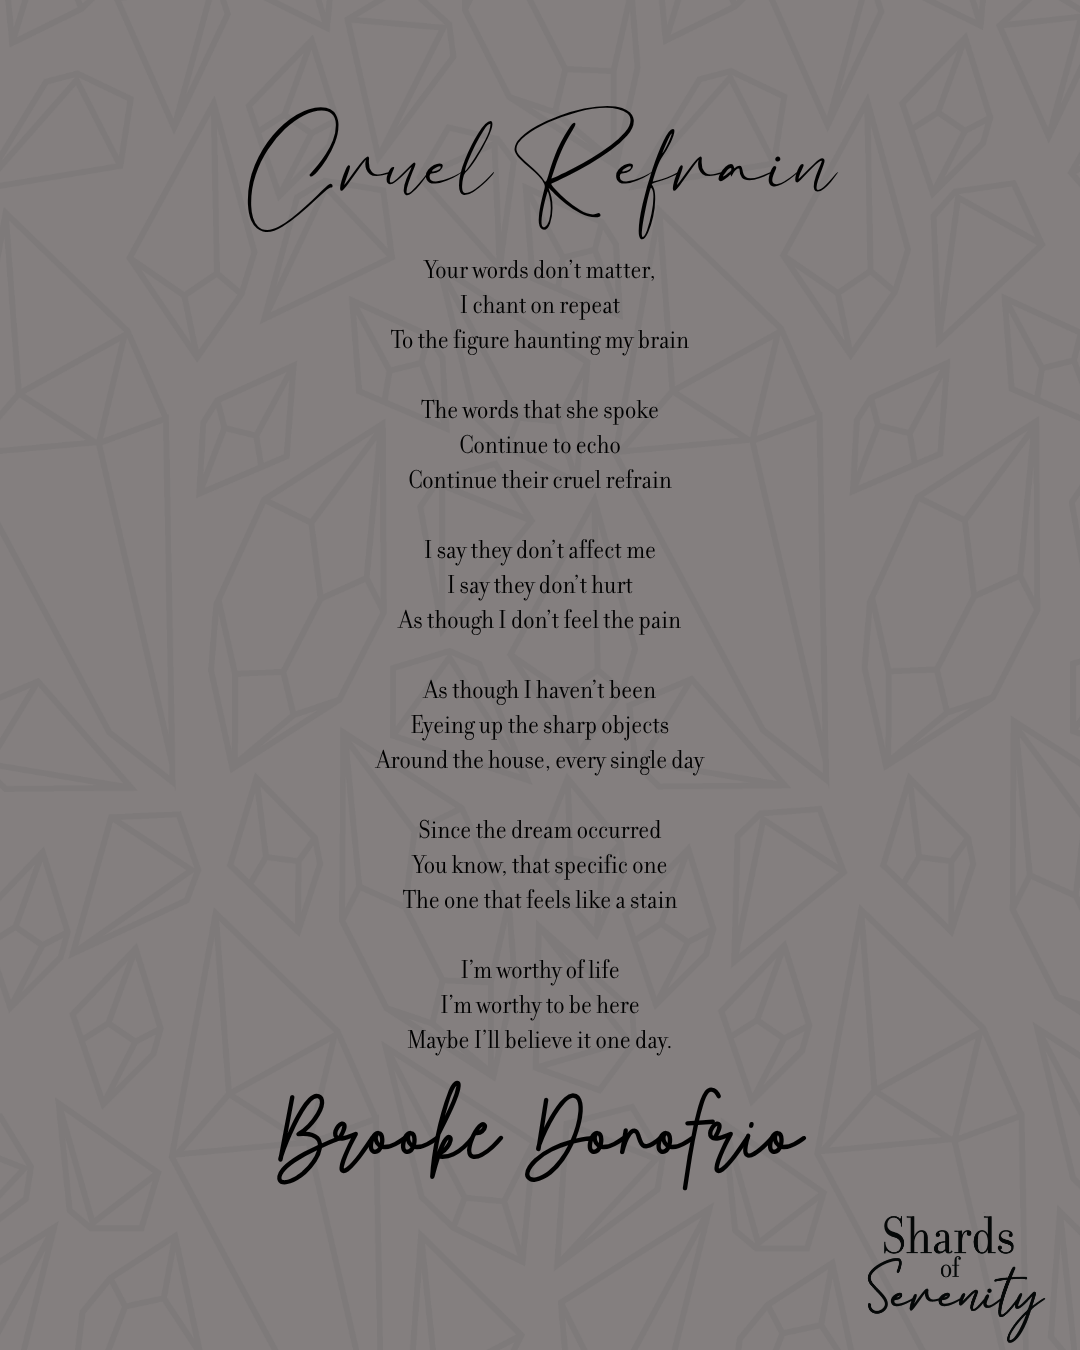 Cruel Refrain
Your words don't matter,
I chant on repeat
To the figure haunting my brain
The words that she spoke
Continue to echo
Continue their cruel refrain
I say they don't affect me
I say they don't hurt
As though I don't feel the pain
As though I haven't been
Eyeing up the sharp objects
Around the house, every single day
Since the dream occurred
You know, that specific one
The one that feels like a stain
I'm worthy of life
I'm worthy to be here
Maybe I'll believe it one day.
Brooke Donofrio
Shards
of
Serenity